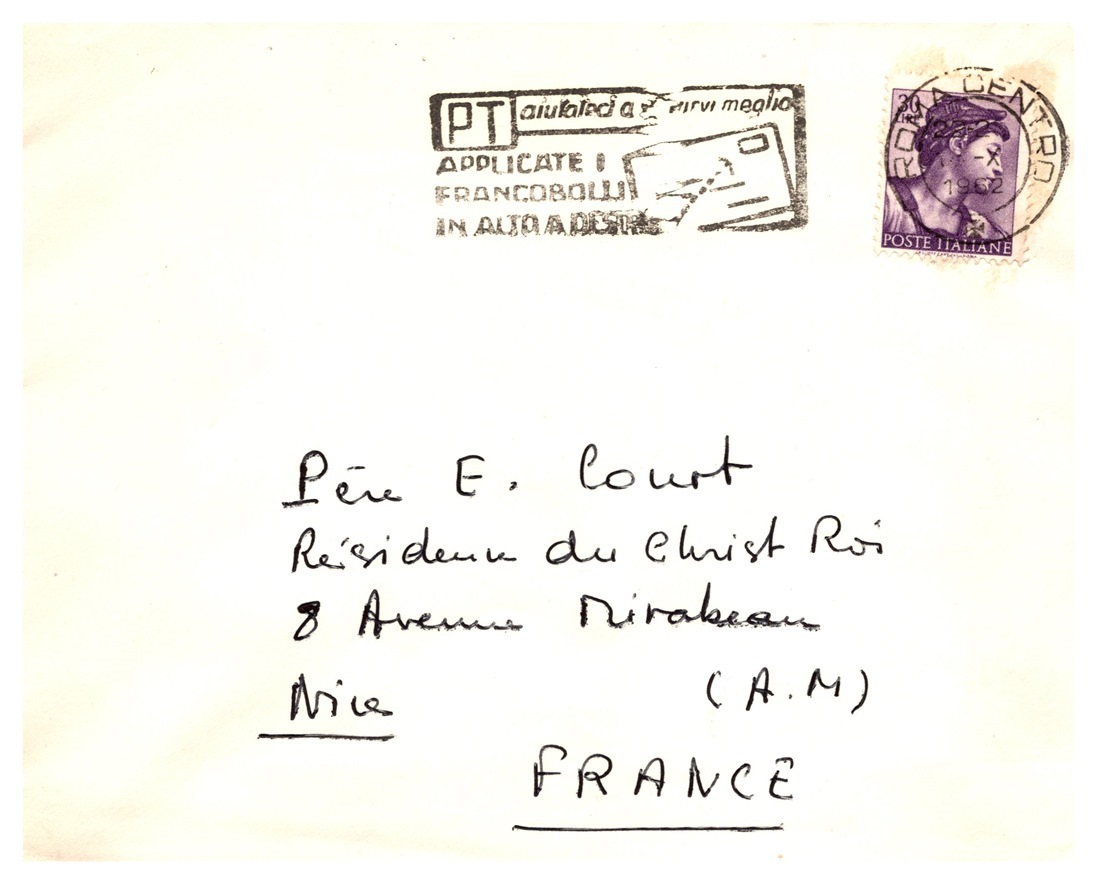 PT aiutateci a servirvi meglio
APPLICATE I
FRANCOBOLLI
IN ALTO A DESTRA
30
ROMA CENTRO
-X
1962
POSTE ITALIANE
Père E. Court
Résidence du Christ Roi
8 Avenue Mirabeau
Nice (A.M)
FRANCE